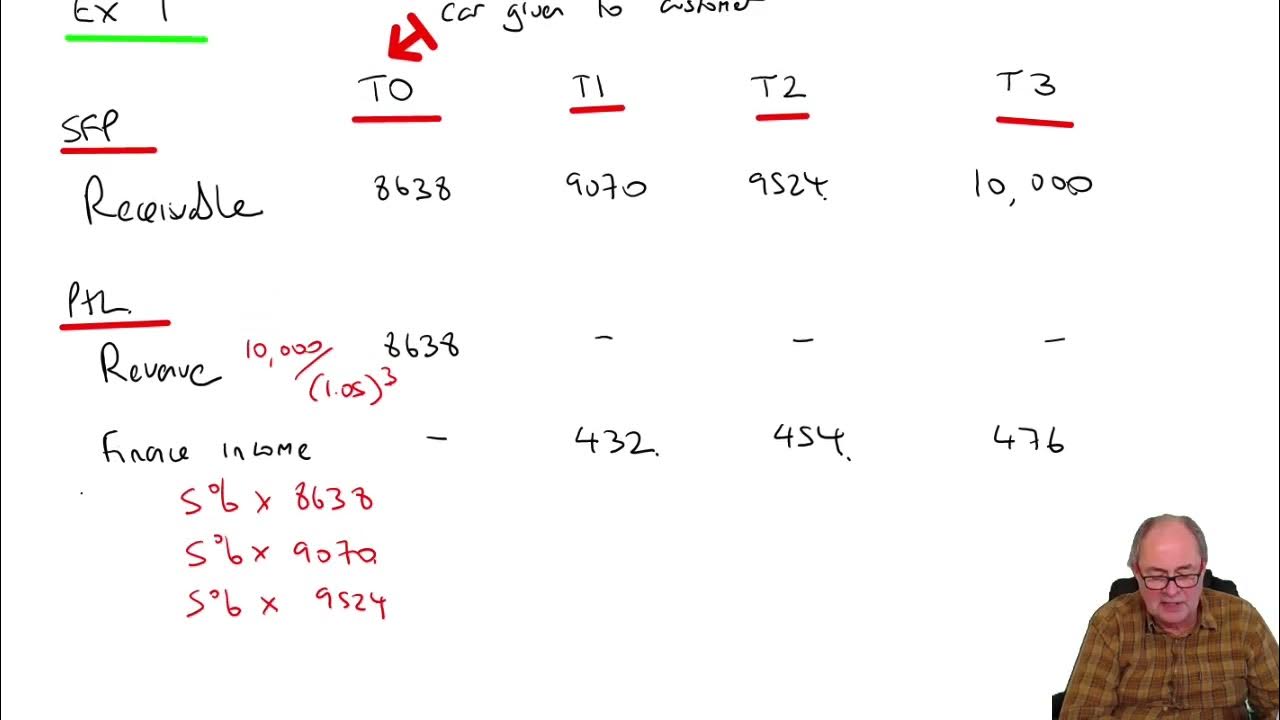 Ex 1
car given to customer
T0 T1 T2 T3
SFP
Receivable 8638 9070 9524. 10,000
P+L.
Revenue 10,000/(1.05)³ 8638 - - -
Finance income - 432. 454. 476
5% x 8638
5% x 9070
5% x 9524